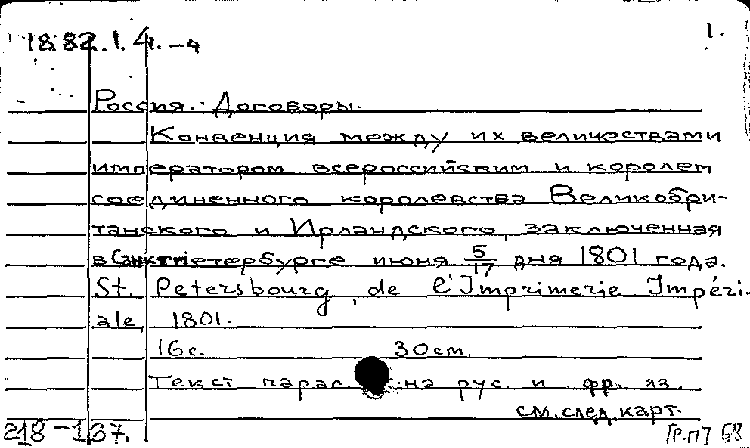 18.82.1.4.-4
1.
Россия. Договоры.
Конвенция между их величествами
императором всероссийским и королем
соединенного королевства Великобри-
танского и Ирландского, заключенная
в Санктпетербурге июня 5/17 дня 1801 года.
St. Petersbourg, de l'Imprimerie Impéri-
ale, 1801.
16с. 30см.
Текст парал на рус. и фр. яз.
см. след. карт.
218-137.